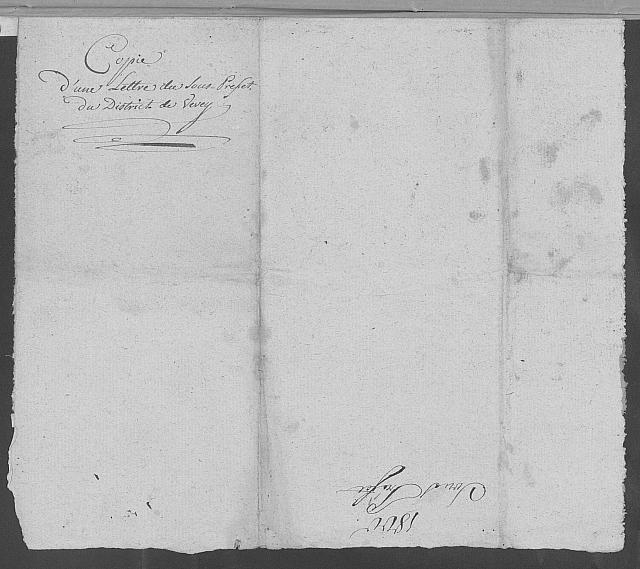 Copie
d'une Lettre du Sous-Prefet
du District de Vevey
1800